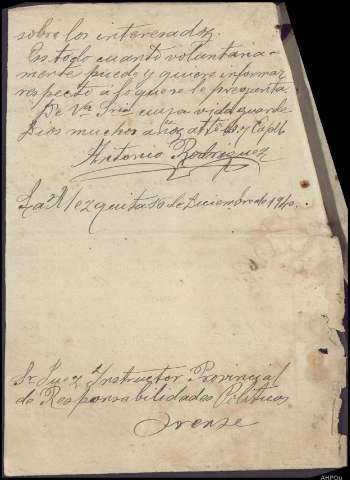 sobre los interesados.
Es todo cuanto voluntaria-
mente puedo y quiero informar
respecto a lo que se le pregunta.
De Vª Sría cuya vida guarde
Dios muchos años atto
Antonio Rodríguez
La Mezquita 10 de Diciembre de 1940.
Sr Juez Instructor Provincial
de Responsabilidades Politicas
Orense
AHPOu